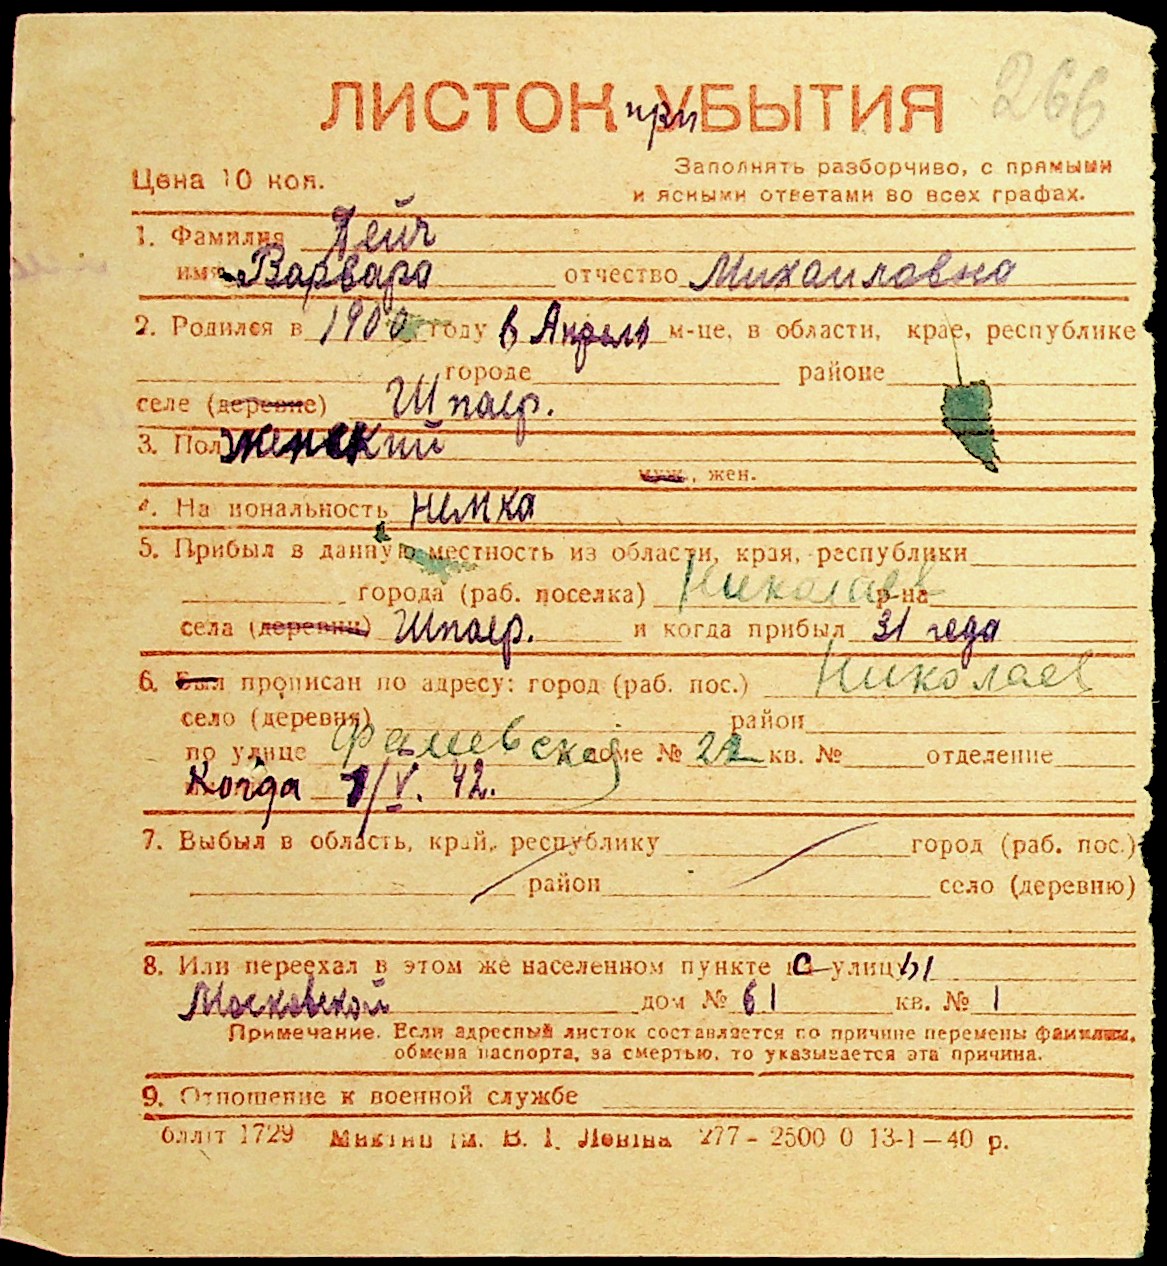 266
ЛИСТОК при УБЫТИЯ
Цена 10 коп.
Заполнять разборчиво, с прямыми
и ясными ответами во всех графах.
1. Фамилия Дейч
имя Варвара отчество Михаиловна
2. Родился в 1900 году в Апреля м-це, в области, крае, республике
городе районе
селе (деревне) Шпаер.
3. Пол женский
муж., жен.
4. Национальность немка
5. Прибыл в данную местность из области, края, республики
города (раб. поселка) Николаев р-на
села (деревни) Шпаер. и когда прибыл 31 года
6. Был прописан по адресу: город (раб. пос.) Николаев
село (деревня) район
по улице доме № 22 кв. № отделение
Когда 1/V. 42.
7. Выбыл в область, край, республику город (раб. пос.)
район село (деревню)
8. Или переехал в этом же населенном пункте с улицы
Московской дом № 61 кв. № 1
Примечание. Если адресный листок составляется по причине перемены фамилии,
обмена паспорта, за смертью, то указывается эта причина.
9. Отношение к военной службе
1729 ім. В. І. Леніна 277 – 2500 0 13-1–40 р.